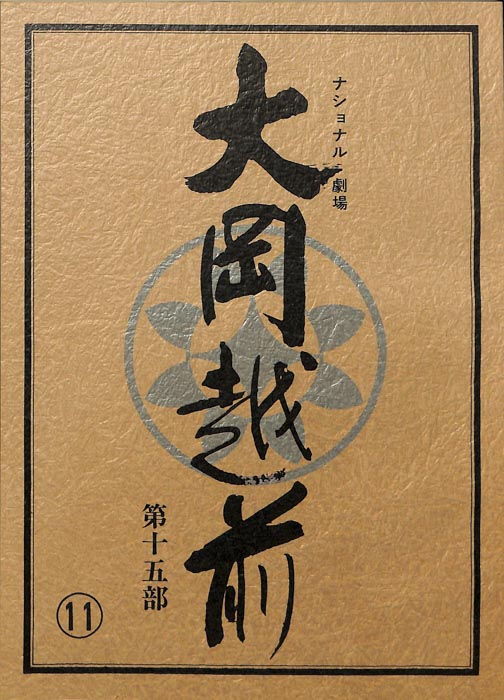 ナショナル劇場
大岡越前
第十五部
11